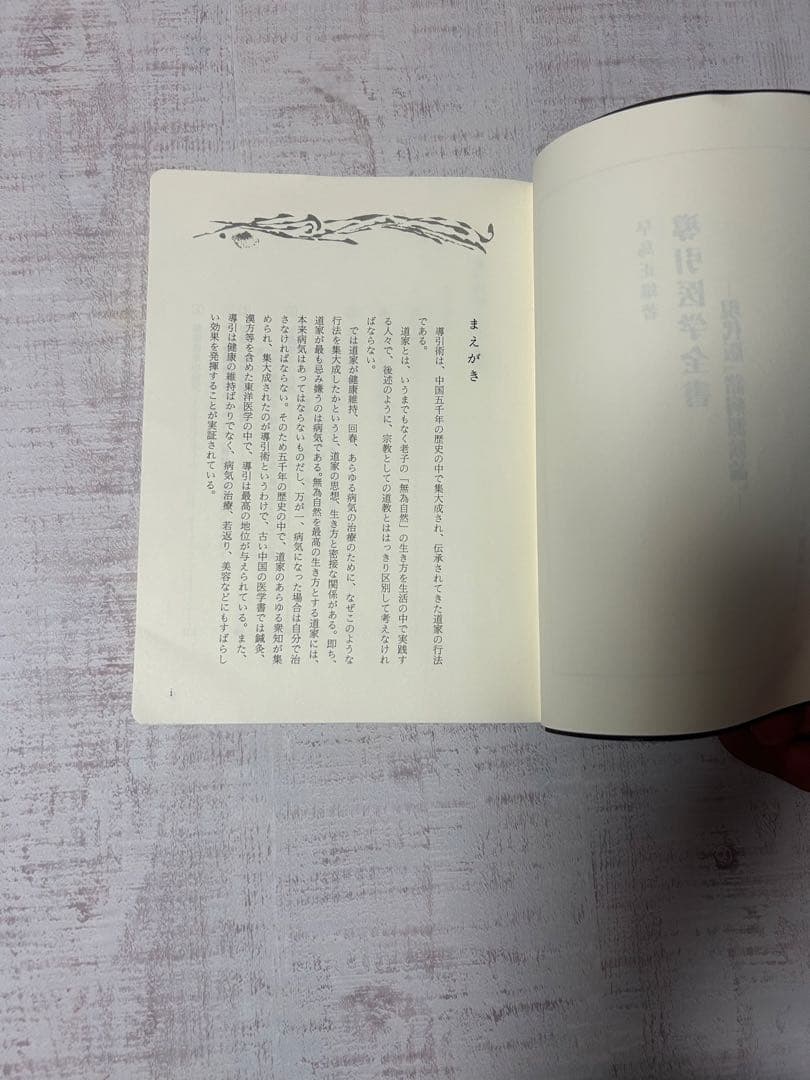 導引医学全書
早島正雄著
まえがき
導引術は、中国五千年の歴史の中で集大成され、伝承されてきた道家の行法
である。
道家とは、いうまでもなく老子の「無為自然」の生き方を生活の中で実践す
る人々で、後述のように、宗教としての道教とははっきり区別して考えなけれ
ばならない。
では道家が健康維持、回春、あらゆる病気の治療のために、なぜこのような
行法を集大成したかというと、道家の思想、生き方と密接な関係がある。即ち、
道家が最も忌み嫌うのは病気である。無為自然を最高の生き方とする道家には、
本来病気はあってはならないものだし、万が一、病気になった場合は自分で治
さなければならない。そのため五千年の歴史の中で、道家のあらゆる衆知が集
められ、集大成されたのが導引術というわけで、古い中国の医学書では鍼灸、
漢方等を含めた東洋医学の中で、導引は最高の地位が与えられている。また、
導引は健康の維持ばかりでなく、病気の治療、若返り、美容などにもすばらし
い効果を発揮することが実証されている。
i